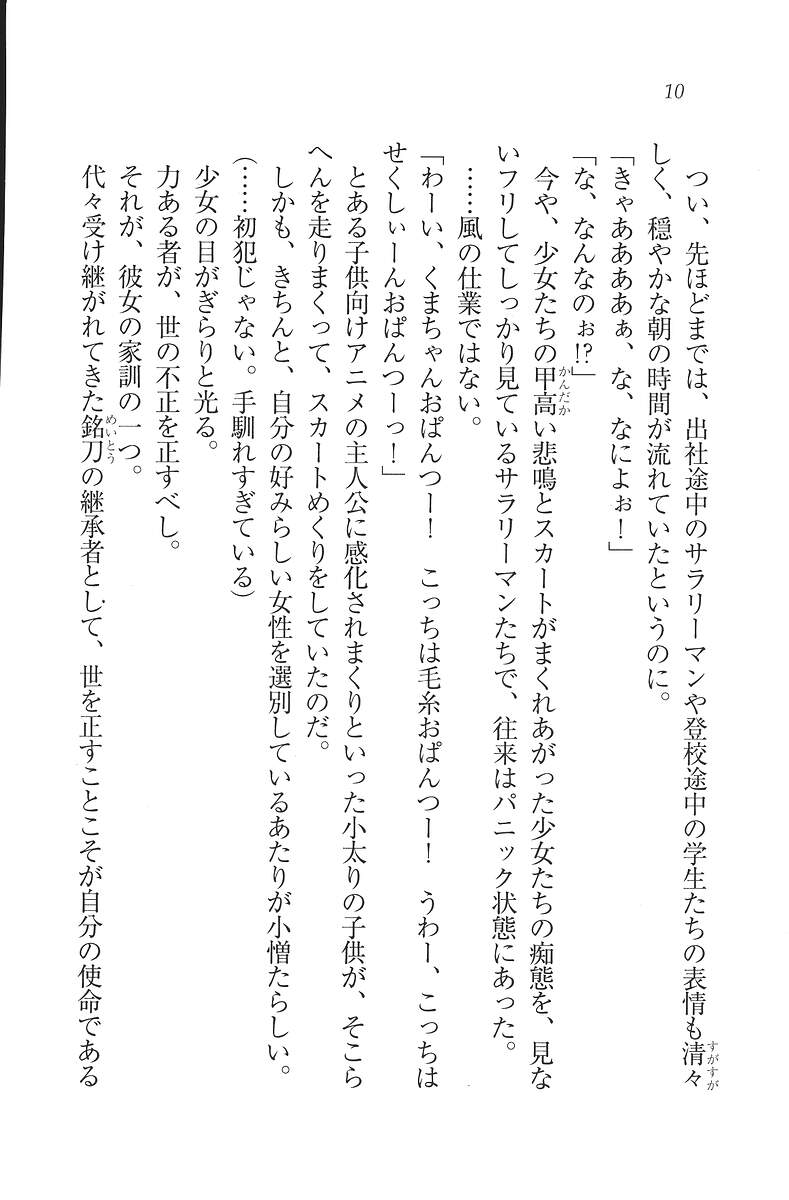 10
つい、先ほどまでは、出社途中のサラリーマンや登校途中の学生たちの表情も清々
しく、穏やかな朝の時間が流れていたというのに。
「きゃああああぁ、な、なによぉ！」
「な、なんなのぉ!?」
今や、少女たちの甲高い悲鳴とスカートがまくれあがった少女たちの痴態を、見な
いフリしてしっかり見ているサラリーマンたちで、往来はパニック状態にあった。
……風の仕業ではない。
「わーい、くまちゃんおぱんつー！　こっちは毛糸おぱんつー！　うわー、こっちは
せくしぃーんおぱんつーっ！」
とある子供向けアニメの主人公に感化されまくりといった小太りの子供が、そこら
へんを走りまくって、スカートめくりをしていたのだ。
しかも、きちんと、自分の好みらしい女性を選別しているあたりが小憎たらしい。
（……初犯じゃない。手馴れすぎている）
少女の目がぎらりと光る。
力ある者が、世の不正を正すべし。
それが、彼女の家訓の一つ。
代々受け継がれてきた銘刀の継承者として、世を正すことこそが自分の使命である
すがすが
かんだか
めいとう